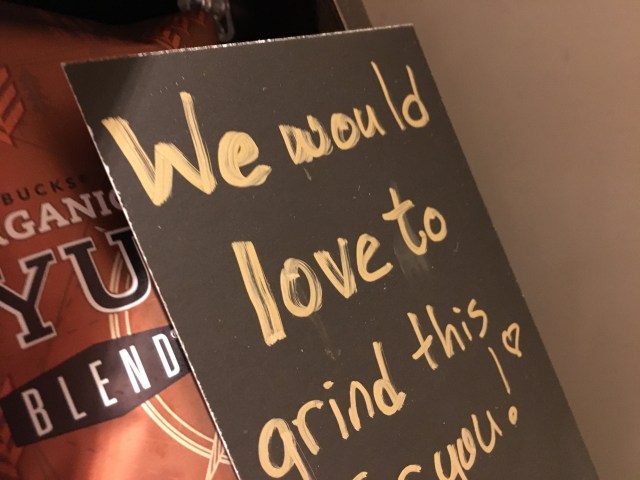 We would
love to
grind this
you! ♡
BUCKS
GANIC
YU
BLEND